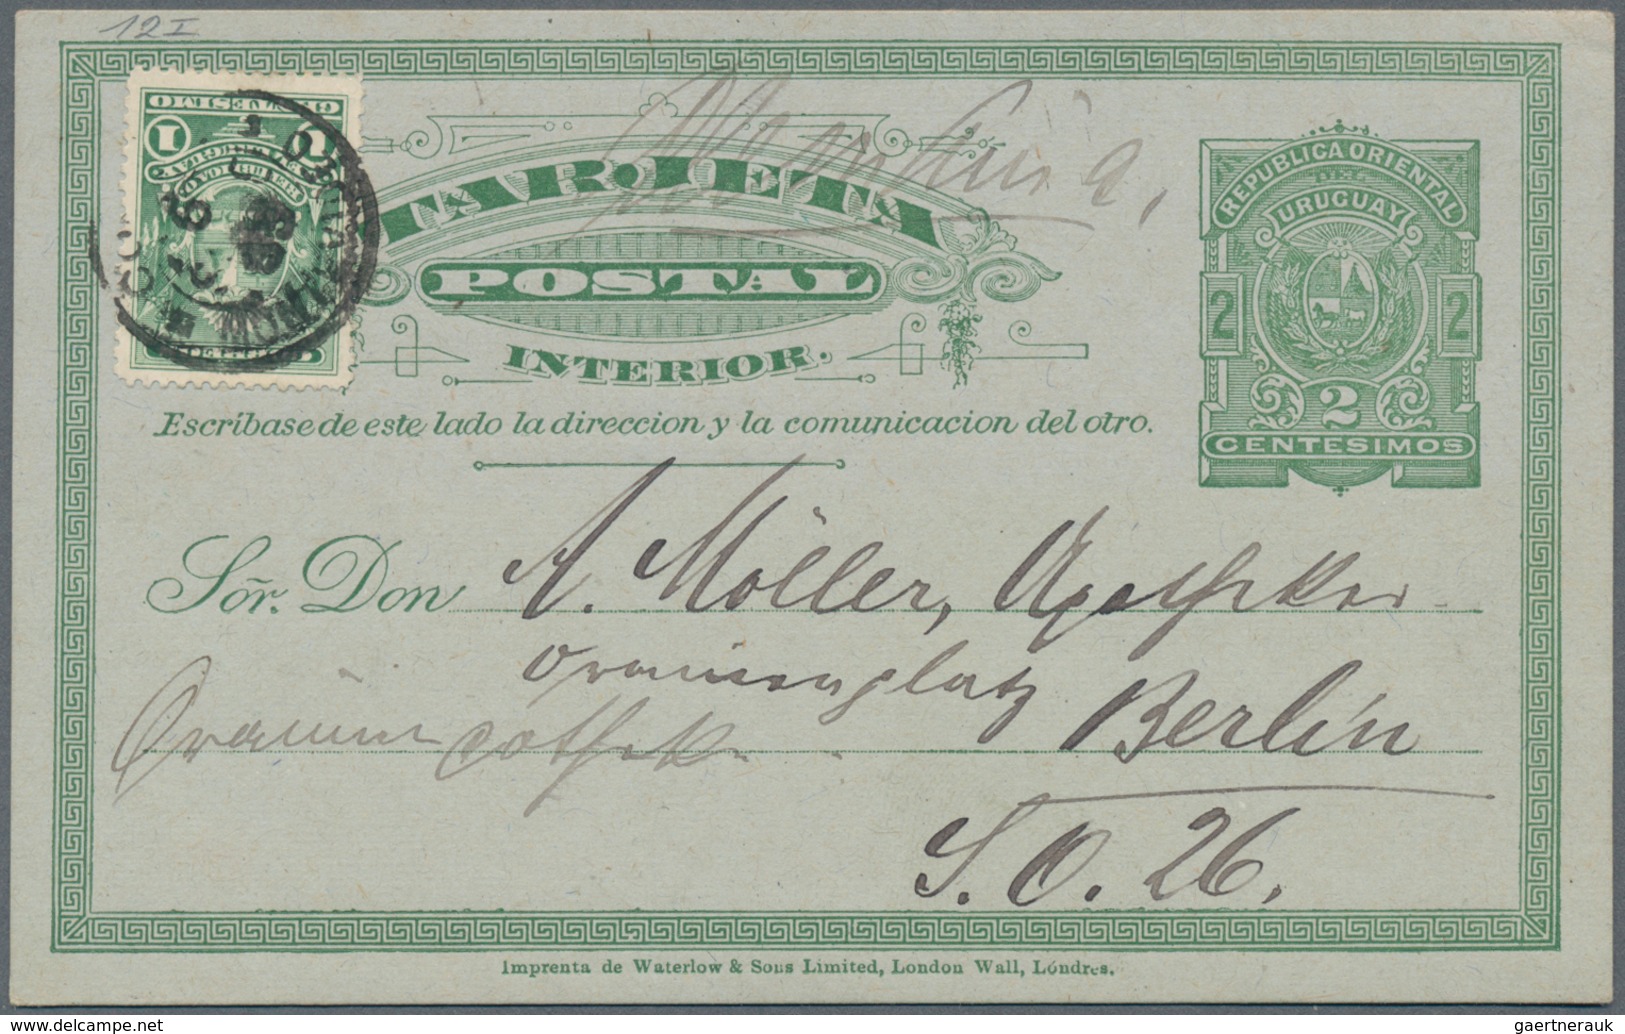 12 I
TARJETA
POSTAL
INTERIOR.
Escríbase de este lado la direccion y la comunicacion del otro.
REPUBLICA ORIENTAL
URUGUAY
2 2
2
CENTESIMOS
1
CENTESIMO
MONTEVIDEO
Sőr. Don A. Möller, Apotheker
Oranienplatz
Berlin
S. O. 26.
Imprenta de Waterlow & Sons Limited, London Wall, Lóndres.
delcampe.net
gaertnerauk